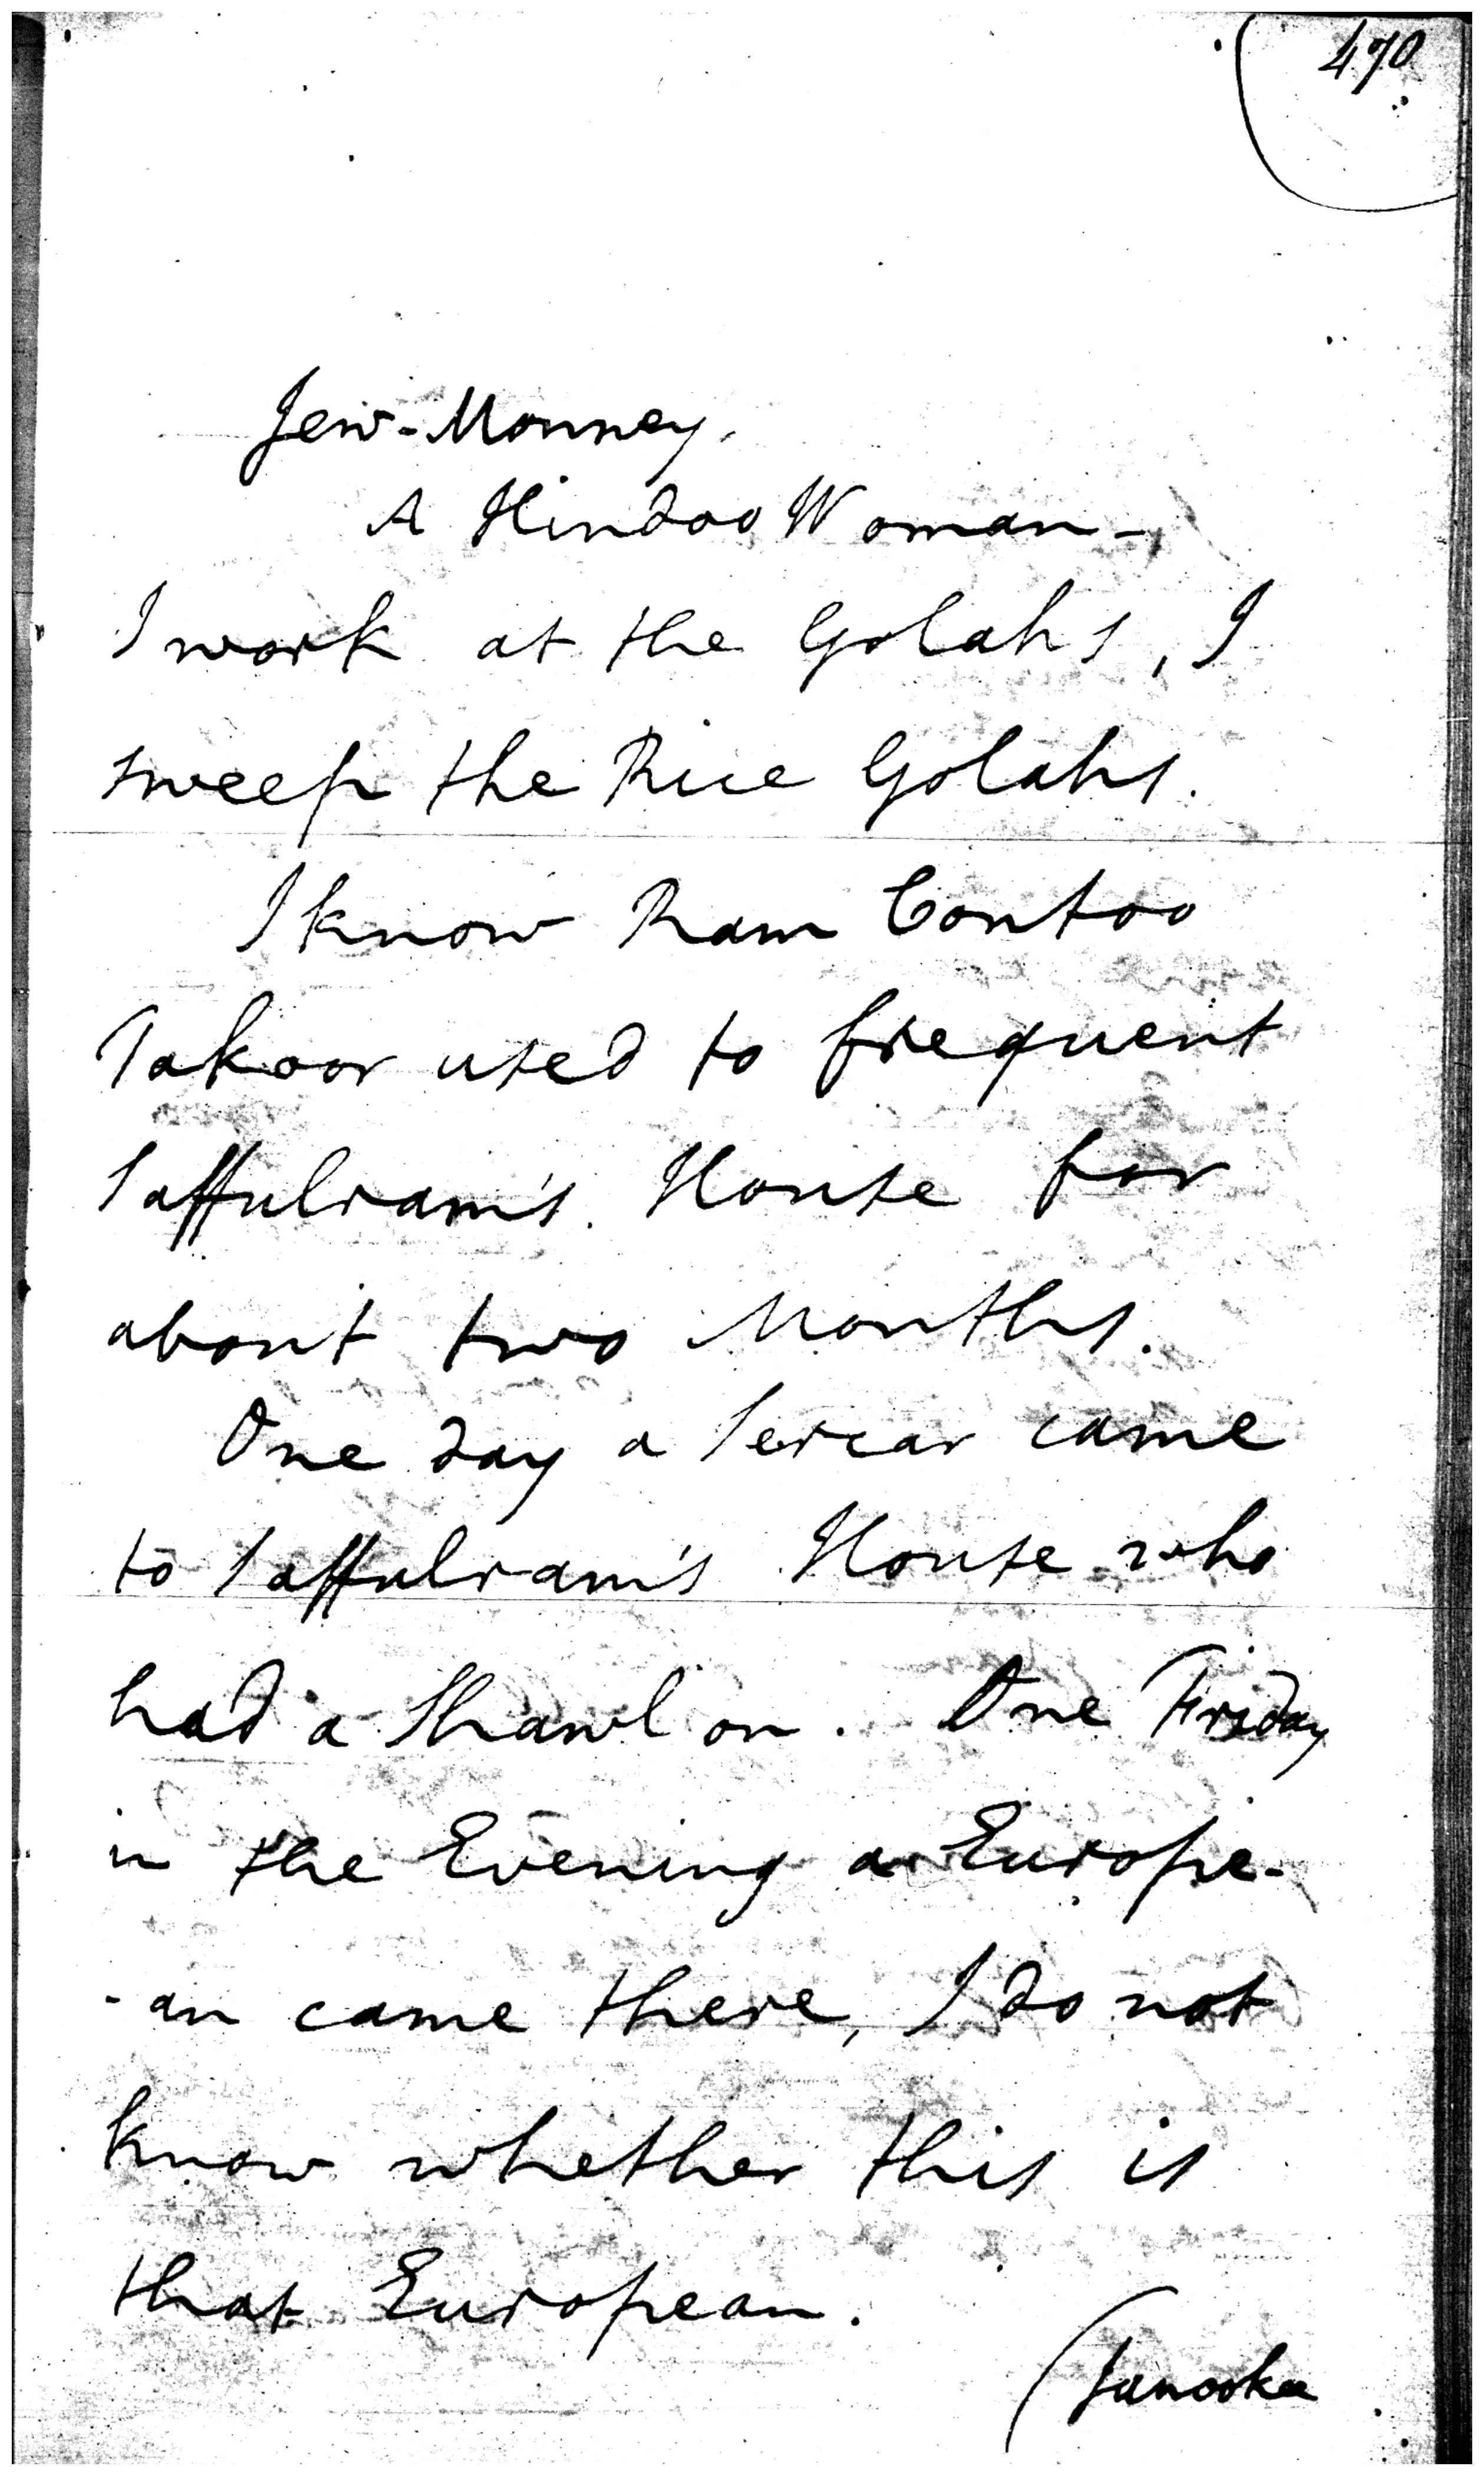 470
Jew-Monney.
A Hindoo Woman-
I work at the Golahs, I
sweep the Rice Golahs.
I know Ram Contoo
Takoor used to frequent
Saffulram's House for
about two Months.
One day a Sercar came
to Saffulram's House who
had a Shawl on. One Friday
in the Evening a Europe-
-an came there, I do not
know whether this is
that European.
(Junookee